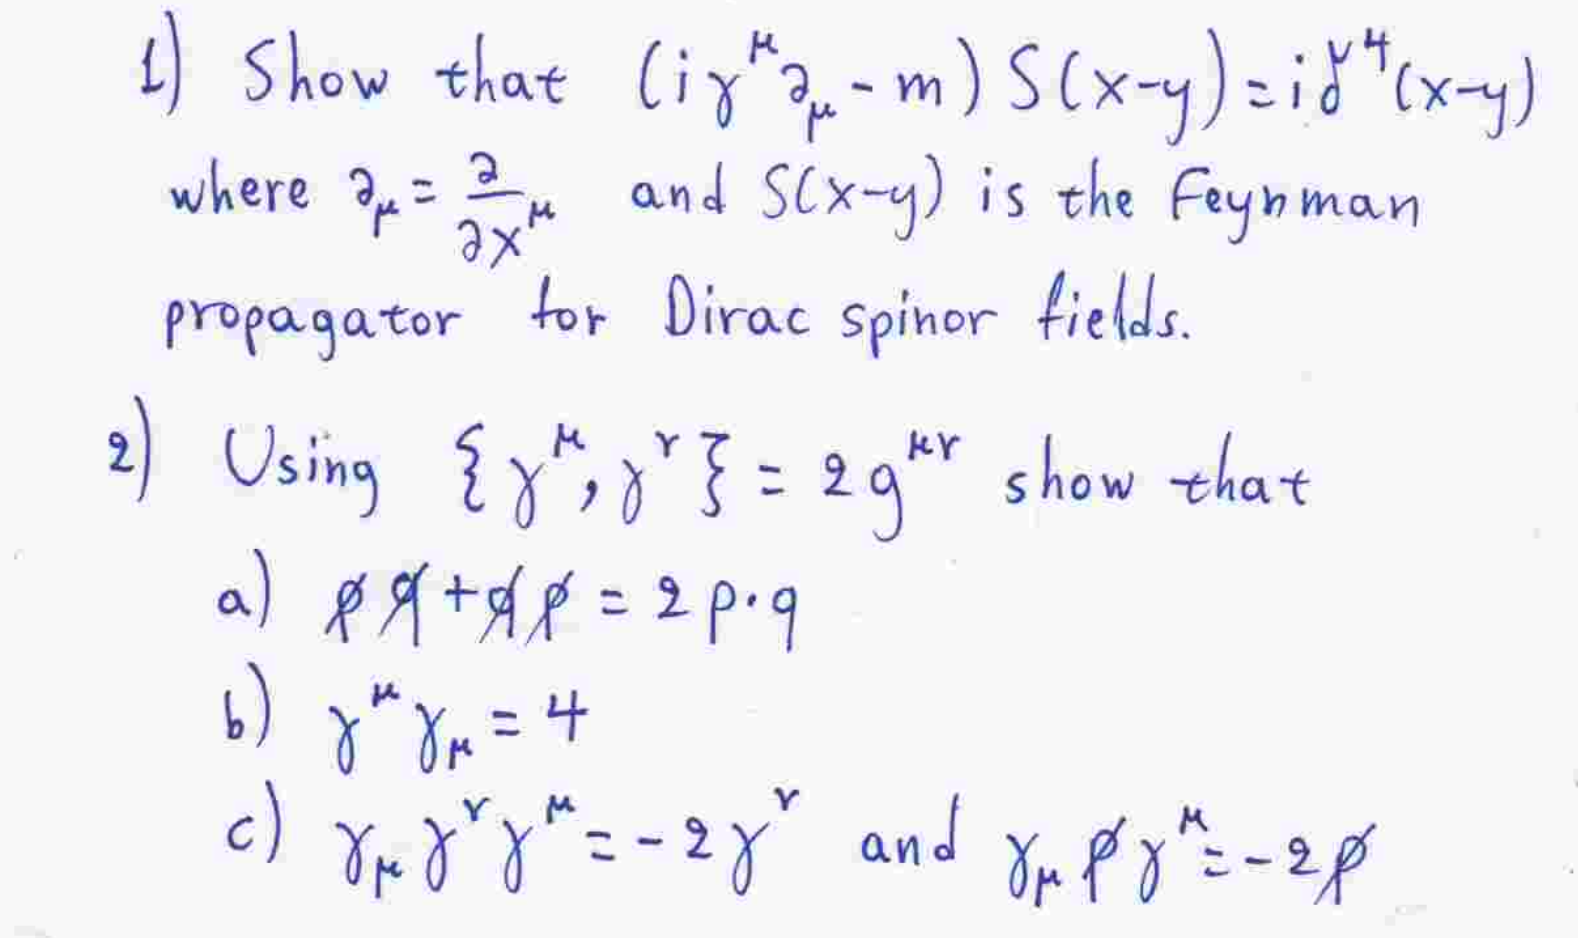 1) Show that (iγ^μ ∂_μ - m) S(x-y) = iδ^4(x-y)
where ∂_μ = ∂/∂x^μ and S(x-y) is the Feynman
propagator for Dirac spinor fields.
2) Using {γ^μ, γ^ν} = 2g^μν show that
a) p̸ q̸ + q̸ p̸ = 2 p·q
b) γ^μ γ_μ = 4
c) γ_μ γ^ν γ^μ = -2γ^ν and γ_μ p̸ γ^μ = -2p̸